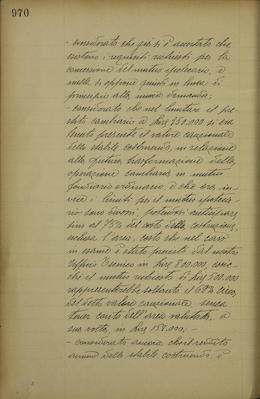 970
- considerato che già si è accertato che
esistono i requisiti richiesti per la
concessione del mutuo ipotecario, e
nulla si oppone quindi in linea di
principio alla nuova domanda;
- considerato che nel limitare il pre-
stito cambiario a Lire 750.000 si era
tenuto presente il valore cauzionale
dello stabile costruendo, in relazione
alla futura trasformazione della
operazione cambiaria in mutuo
fondiario ordinario e che ora, in-
vece, i limiti per il mutuo ipoteca-
rio sono
sino al 75% del costo della costruzione,
esclusa l'area, costo che nel caso
in esame è stato previsto dal nostro
Ufficio Tecnico in Lire 800.000, sic-
chè il mutuo richiesto di Lire 500.000
rappresenterebbe soltanto il 62% circa
del detto valore cauzionale senza
tener conto dell'area valutata, a
sua volta, in Lire 158.000.-
- considerato ancora che il reddito
annuo dello stabile costruendo è